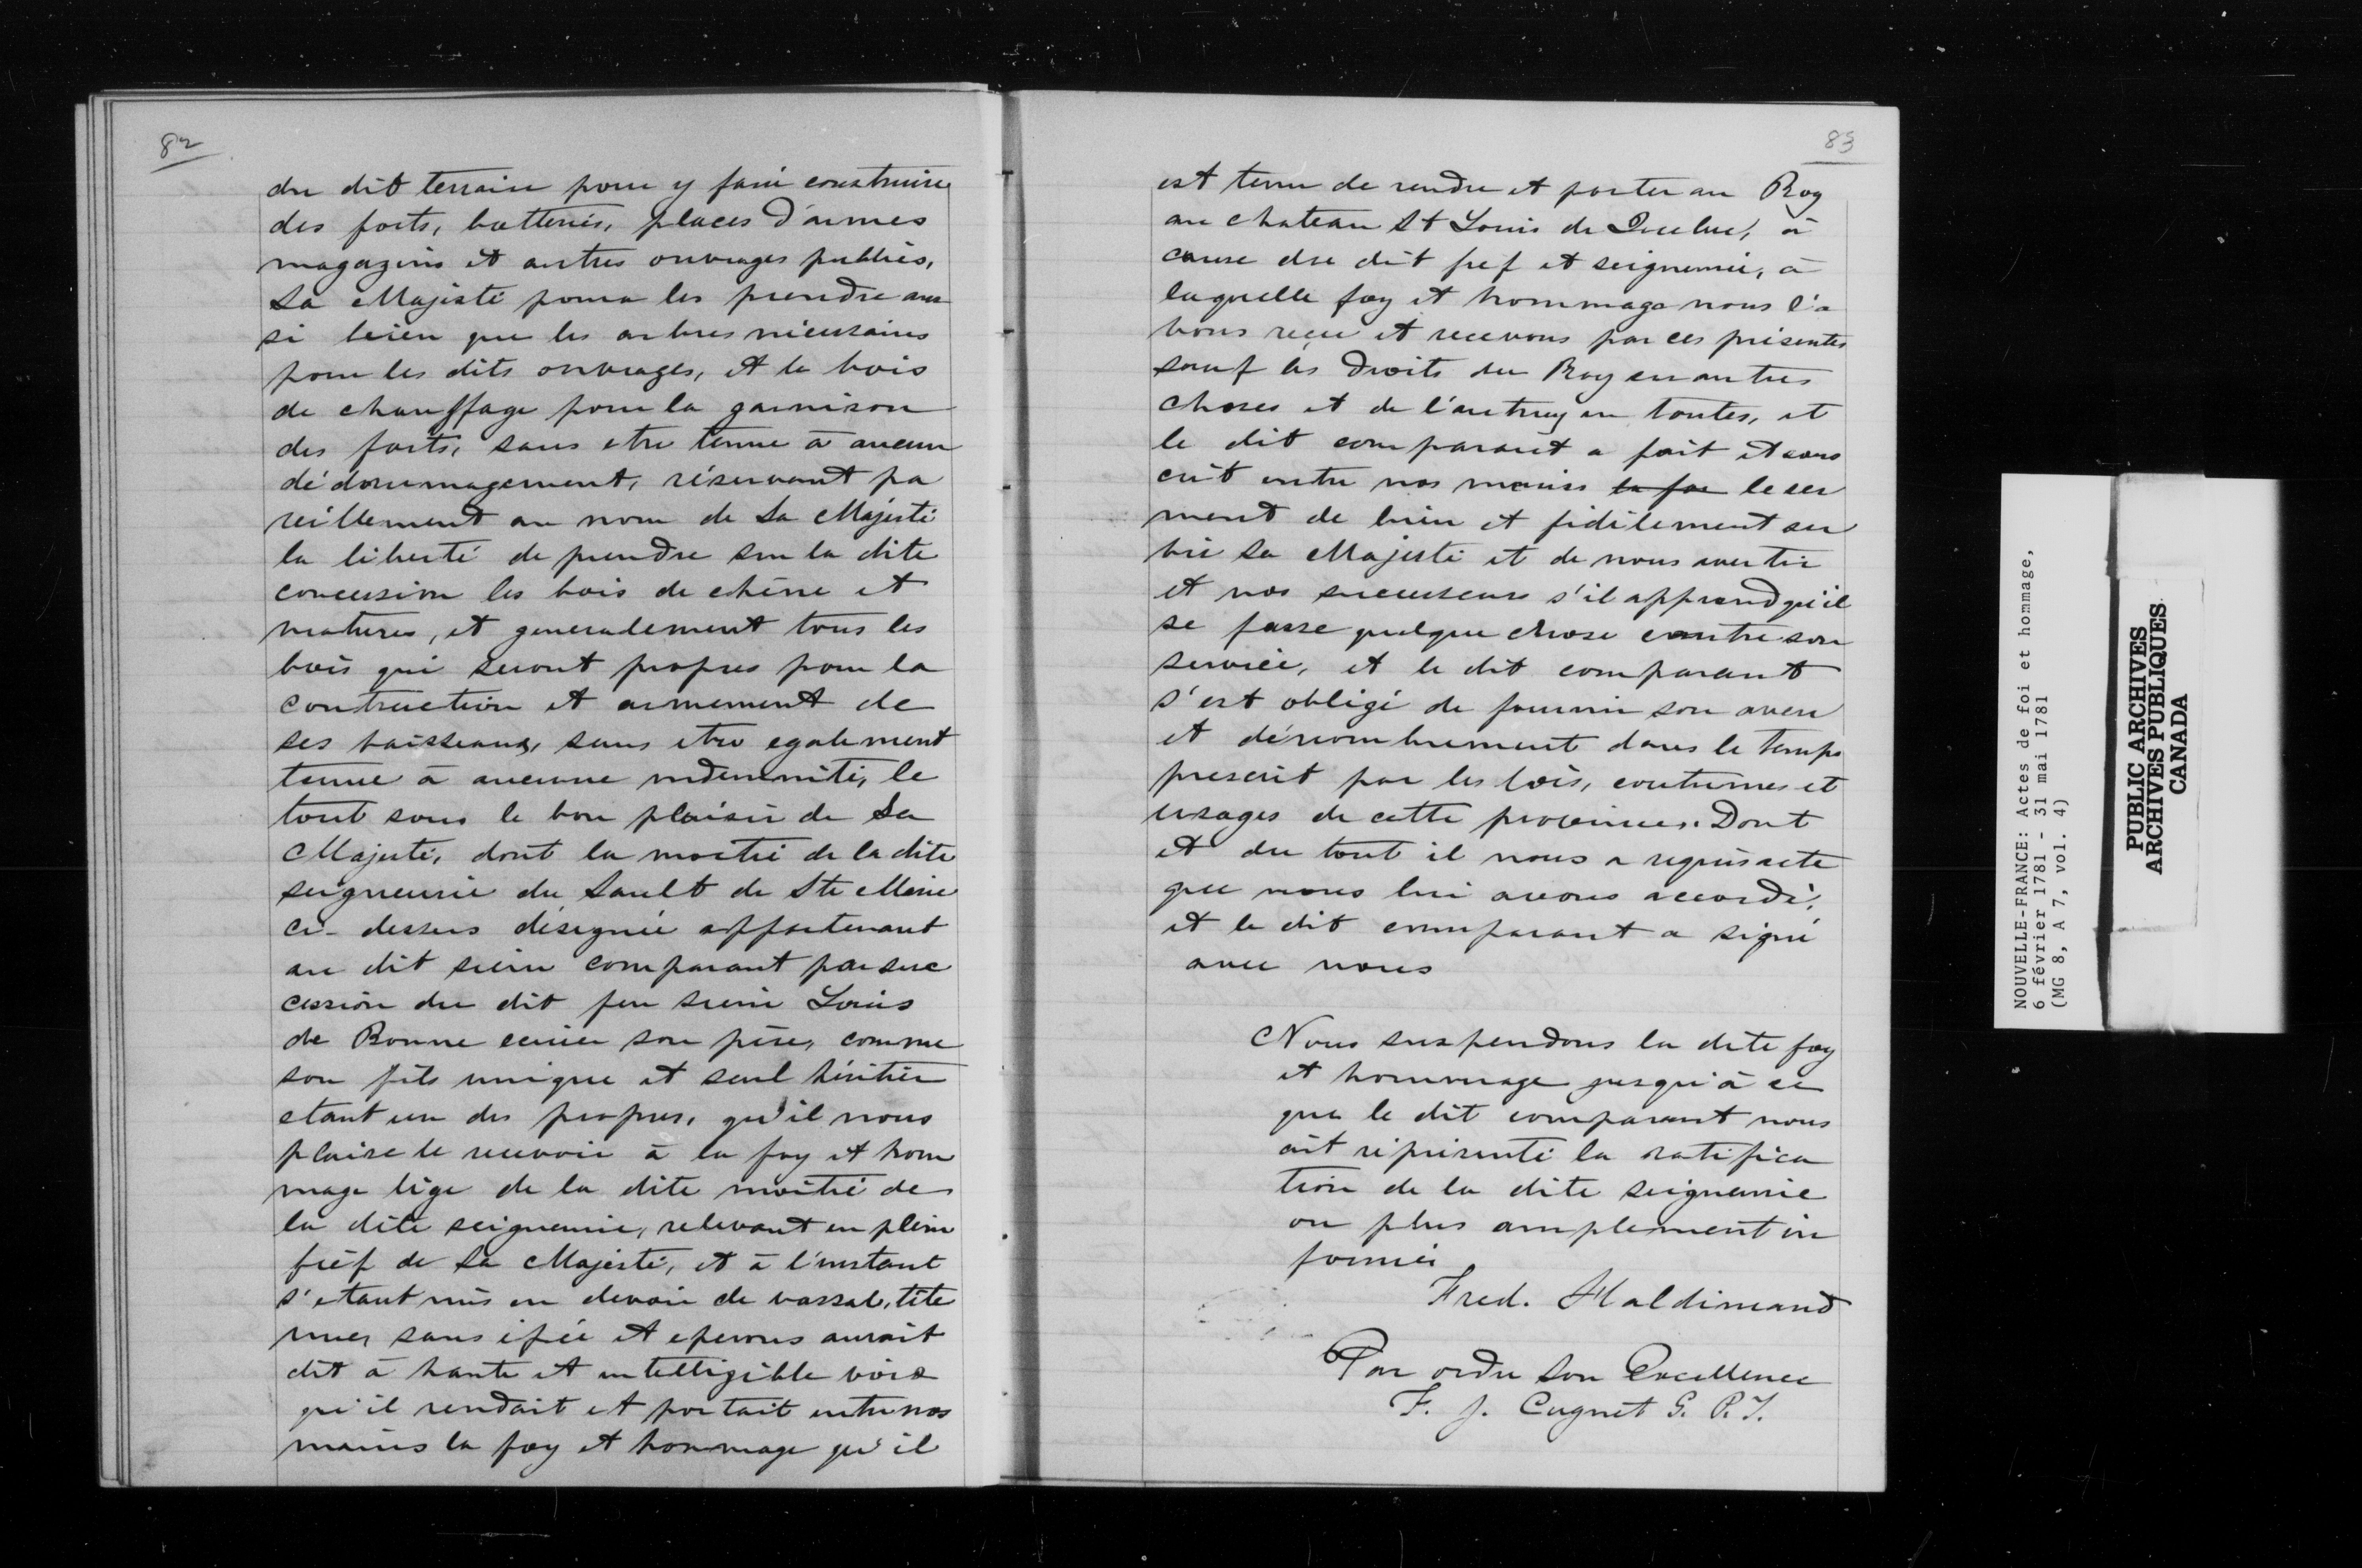 82
du dit terrain pour y faire construire
des forts, batteries, places d'armes
magazins et autres ouvrages publics,
Sa Majesté poura les prendre aus
si bien que les arbres nécessaires
pour les dits ouvrages, et le bois
de chauffage pour la garnison
des forts, sans etre tenue à aucun
dédommagement, réservant pa
reillement au nom de Sa Majesté
la liberté de prendre sur la dite
concession les bois de chêne et
matures, et generalement tous les
bois qui seront propres pour la
contruction et armement de
ses vaisseaux, sans etre egalement
tenue à aucune indemnité, le
tout sous le bon plaisir de Sa
Majesté, dont la moitié de la dite
seigneurie du Sault de Ste Marie
ci-dessus désignée appartenant
au dit sieur comparant par suc
cession du dit feu sieur Louis
de Bonne ecuier son père, comme
son fils unique et seul héritier
etant un des propres, qu'il nous
plaise le recevoir à la foy et hom
mage lige de la dite moitié de
la dite seigneurie, relevant en plein
fief de Sa Majesté, et à l'instant
s'etant mis en devoir de vassal, tête
nue, sans épée et eperons aurait
dit à haute et intelligible voix
qu'il rendait et portait entre nos
mains la foy et hommage qu'il
83
est tenu de rendre et porter au Roy
au chateau St Louis de Quebec, à
cause du dit fief et seigneurie, à
laquelle foy et hommage nous l'a
vons reçu et recevons par ces présentes
sauf les droits du Roy en autres
choses et de l'autruy en toutes, et
le dit comparant a fait et sous
crit entre nos mains la foi le ser
ment de bien et fidèlement ser
vir Sa Majesté et de nous avertir
et nos successeurs s'il apprend qu'il
se fasse quelque chose contre son
service, et le dit comparant
s'est obligé de fournir son aveu
et dénombrement dans le temps
prescrit par les lois, coutumes et
usages de cette province. Dont
et du tout il nous a requis acte
que nous lui avons accordé,
et le dit comparant a signé
avec nous
Nous suspendons la dite foy
et hommage jusqu'à ce
que le dit comparant nous
ait réprésenté la ratifica
tion de la dite seigneurie
ou plus amplement in
formés
Fred. Haldimand
Par ordre Son Excellence
F. J. Cugnet G. P. T.
NOUVELLE-FRANCE: Actes de foi et hommage,
6 février 1781 - 31 mai 1781
(MG 8, A 7, vol. 4)
PUBLIC ARCHIVES
ARCHIVES PUBLIQUES
CANADA